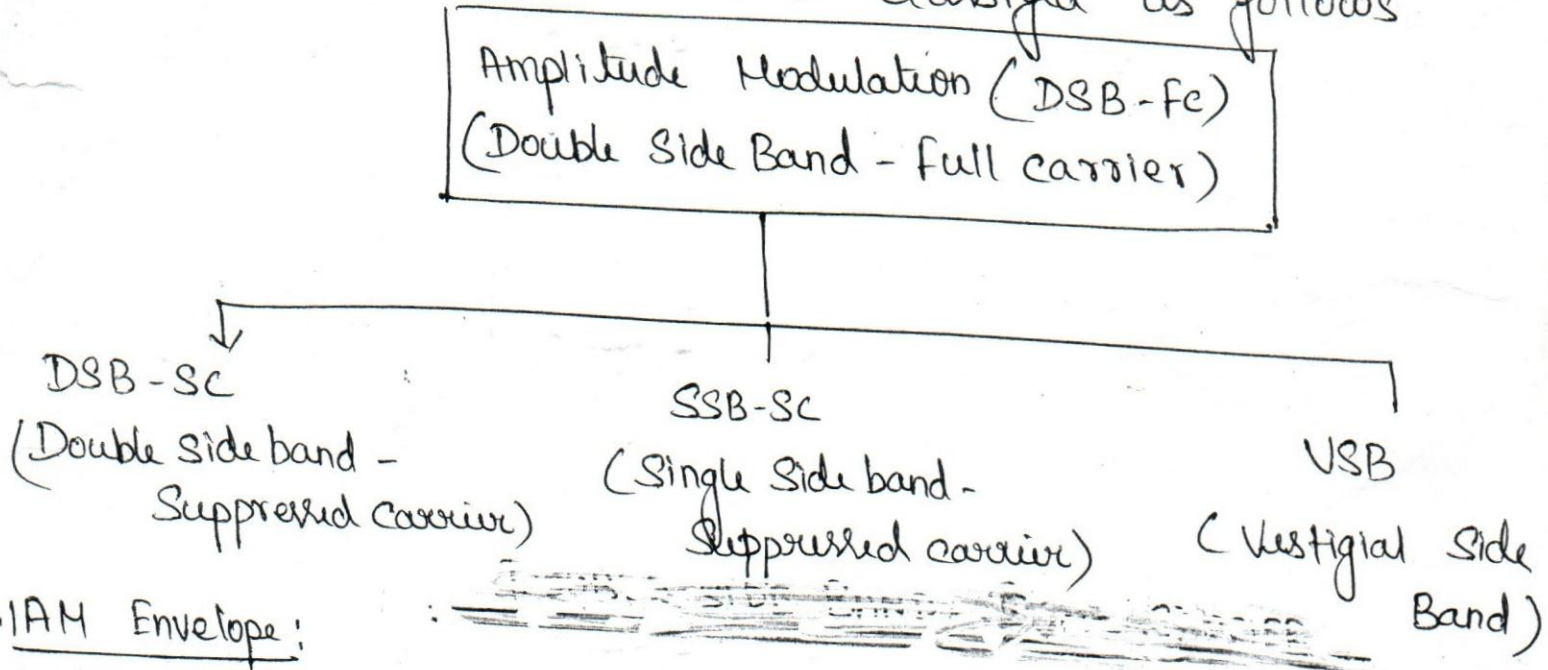 as follows
Amplitude Modulation (DSB-fc)
(Double Side Band - full carrier)
DSB-SC
(Double side band -
Suppressed carrier)
SSB-SC
(Single Side band -
Suppressed carrier)
VSB
(Vestigial Side
Band)
AM Envelope: